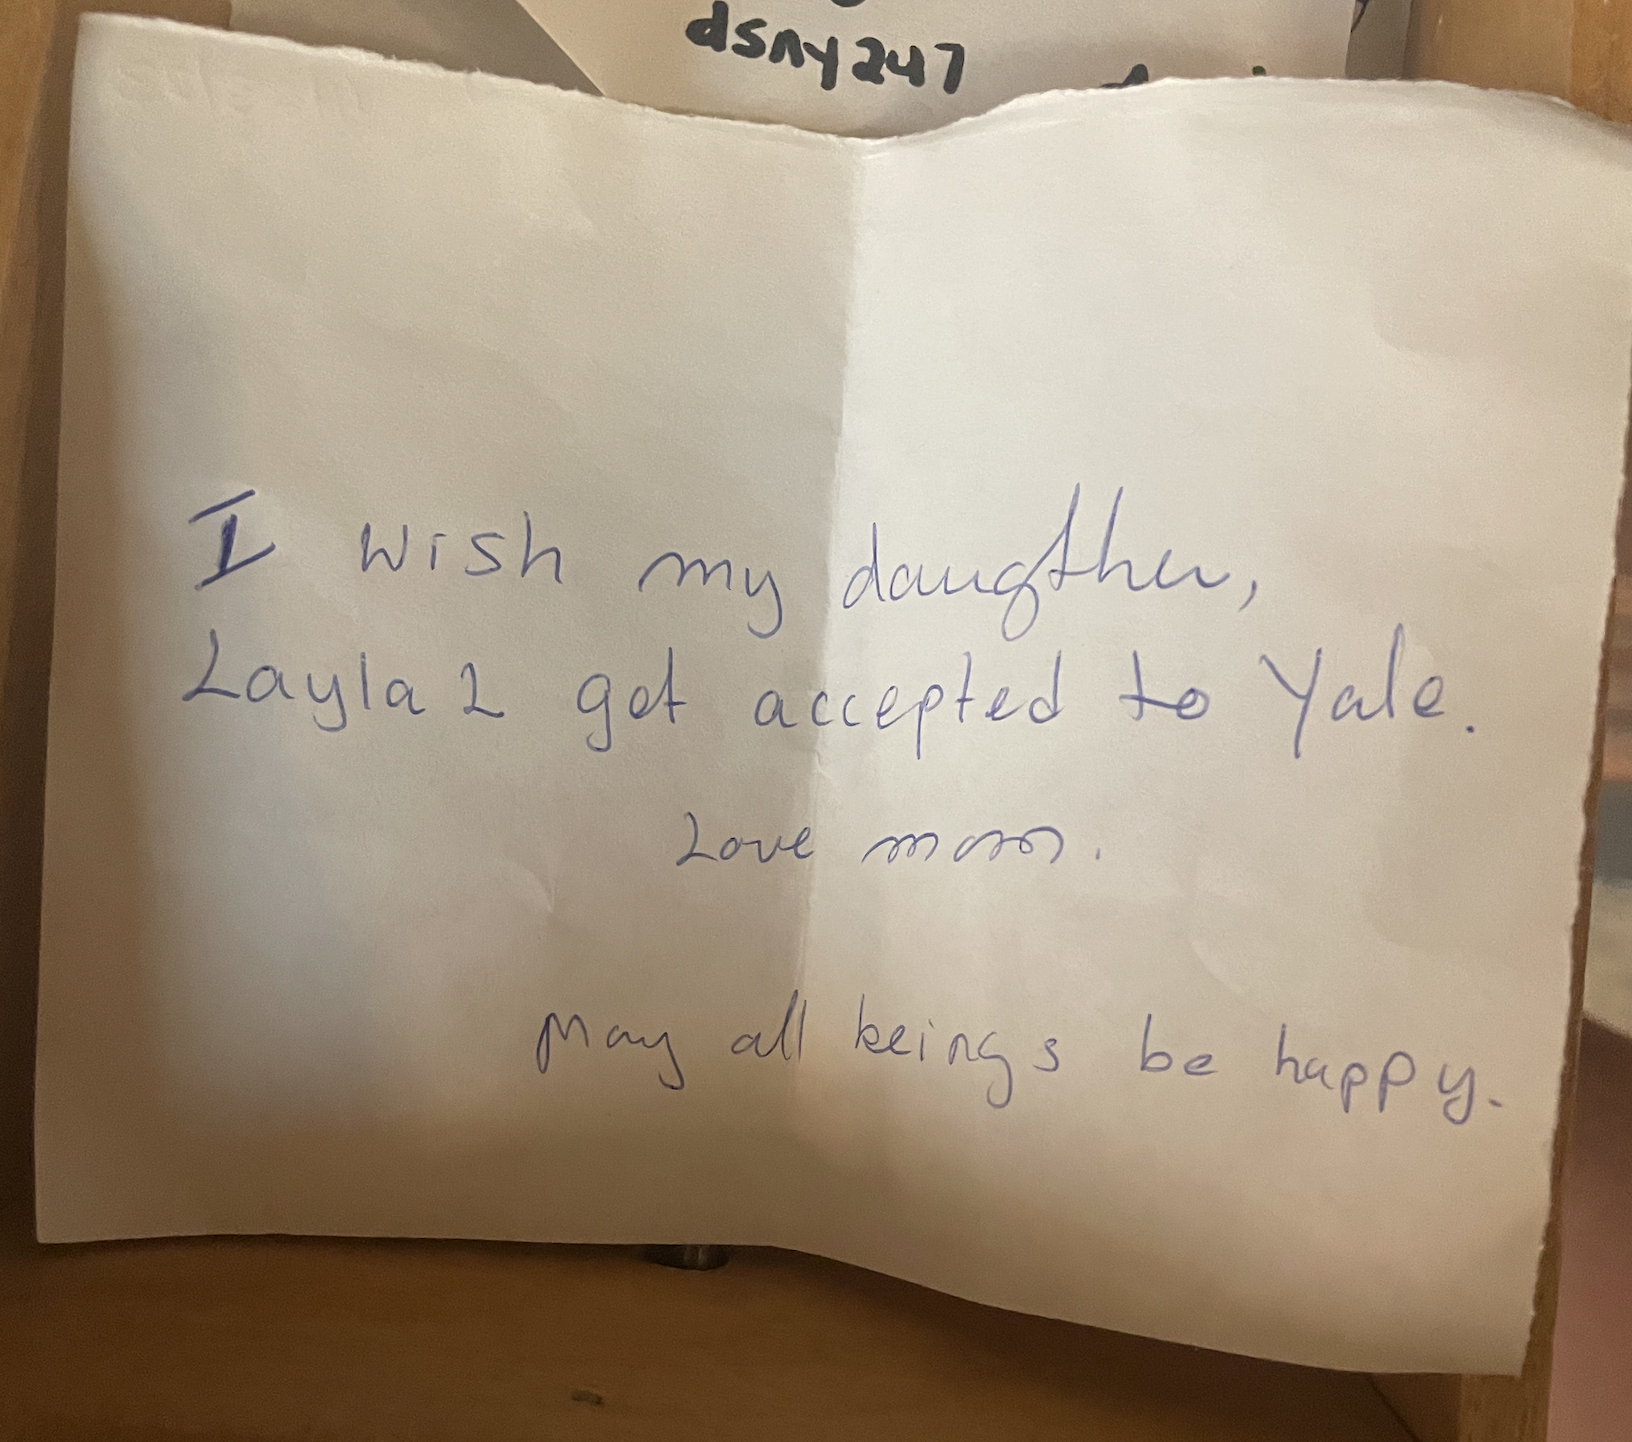 dsny247
I wish my daugther,
Layla L get accepted to Yale.
Love mom.
May all beings be happy.